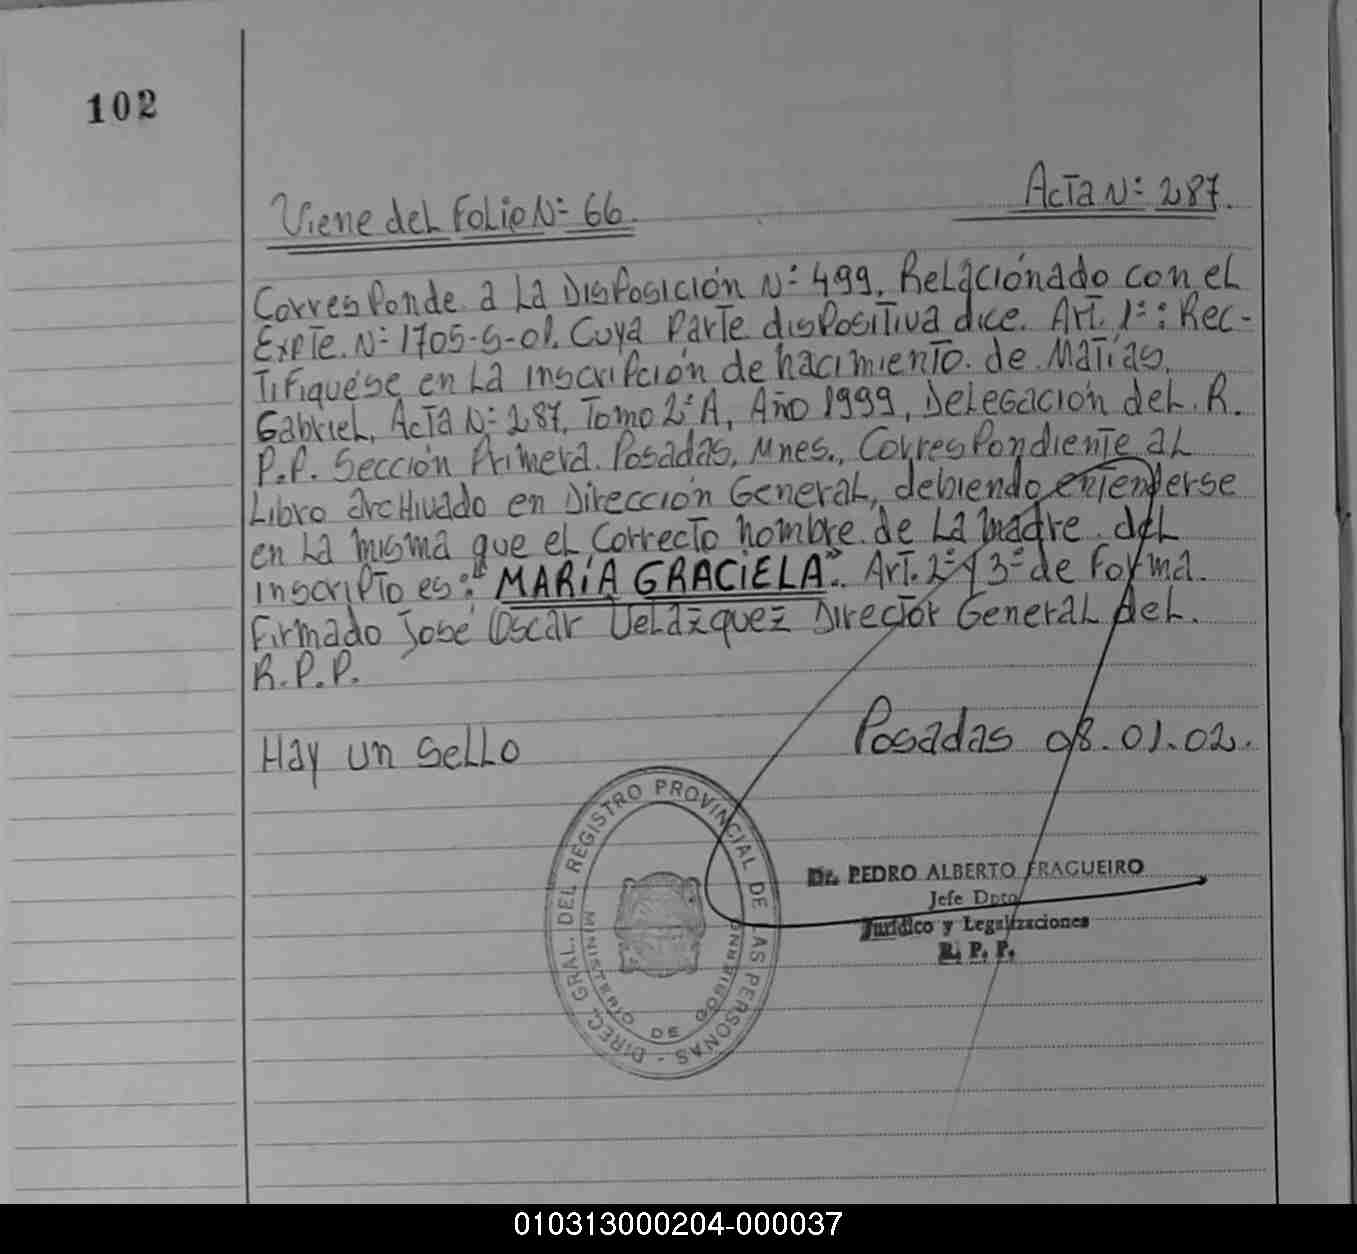 102
Viene del Folio Nº 66.
Acta Nº 287.
Corresponde a la Disposición Nº 499, Relacionado con el
Expte. Nº 1705-S-01. Cuya Parte dispositiva dice. Art. 1º: Rec-
tifiquése en la inscripción de nacimiento de Matías
Gabriel, Acta Nº 287, Tomo 2º A, Año 1999, Delegación del R.
P.P. Sección Primera Posadas, Mnes., Correspondiente al
Libro archivado en Dirección General, debiendo entenderse
en la misma que el correcto nombre de la madre del
inscripto es: "MARÍA GRACIELA". Art. 2º y 3º de Forma.
Firmado José Oscar Velázquez Director General del
R.P.P.
Hay un sello
Posadas 08.01.02.
DIREC. GRAL. DEL REGISTRO PROVINCIAL DE LAS PERSONAS -
MINISTERIO DE GOBIERNO
Dr. PEDRO ALBERTO FRAGUEIRO
Jefe Dpto
Jurídico y Legalizaciones
R. P. P.
010313000204-000037